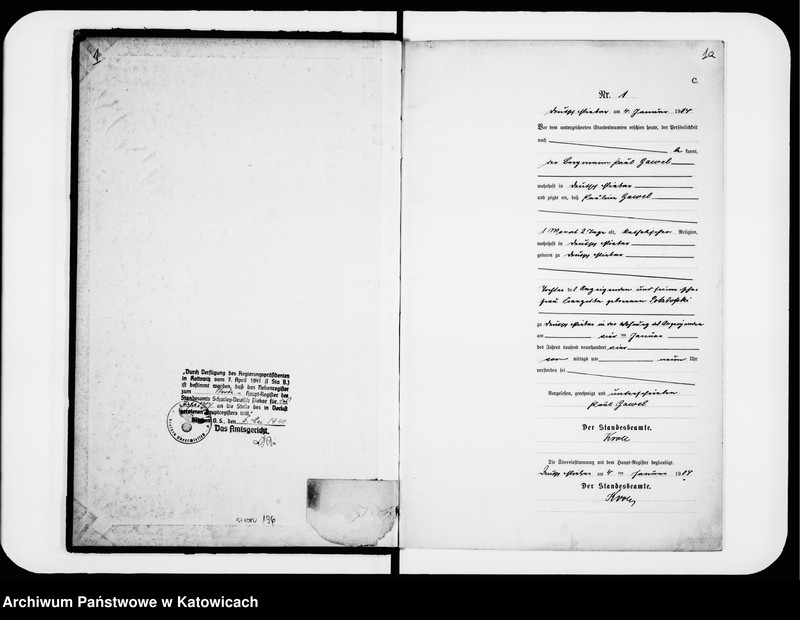 1
„Durch Verfügung des Regierungspräsidenten
in Kattowitz vom 7. April 1941 (I Sta B.)
ist bestimmt worden, daß das Nebenregister
zum Haupt-Register des
Standesamts Scharley-Deutsch Piekar für
an die Stelle des in Verlust
geratenen Hauptregisters tritt."
O. S., den 1941
Das Amtsgericht.
196
1a
C.
Nr. 1
Deutsch Piekar am 4. Januar 1904
Vor dem unterzeichneten Standesbeamten erschien heute, der Persönlichkeit
nach
be kannt,
der Bergmann Paul Gawel
wohnhaft in Deutsch Piekar
und zeigte an, daß Paulina Gawel
1 Monat 2 Tage alt, katholischer Religion,
wohnhaft in Deutsch Piekar
geboren zu Deutsch Piekar
Tochter des Anzeigenden und seiner Ehe-
frau geborenen
zu Deutsch Piekar in der Wohnung des Anzeigenden
am vier ten Januar
des Jahres tausend neunhundert vier
vor mittags um neun Uhr
verstorben sei
Vorgelesen, genehmigt und unterschrieben
Paul Gawel
Der Standesbeamte.
Kroll
Die Übereinstimmung mit dem Haupt-Register beglaubigt.
Deutsch Piekar am 4 ten Januar 1904
Der Standesbeamte.
Kroll
Archiwum Państwowe w Katowicach